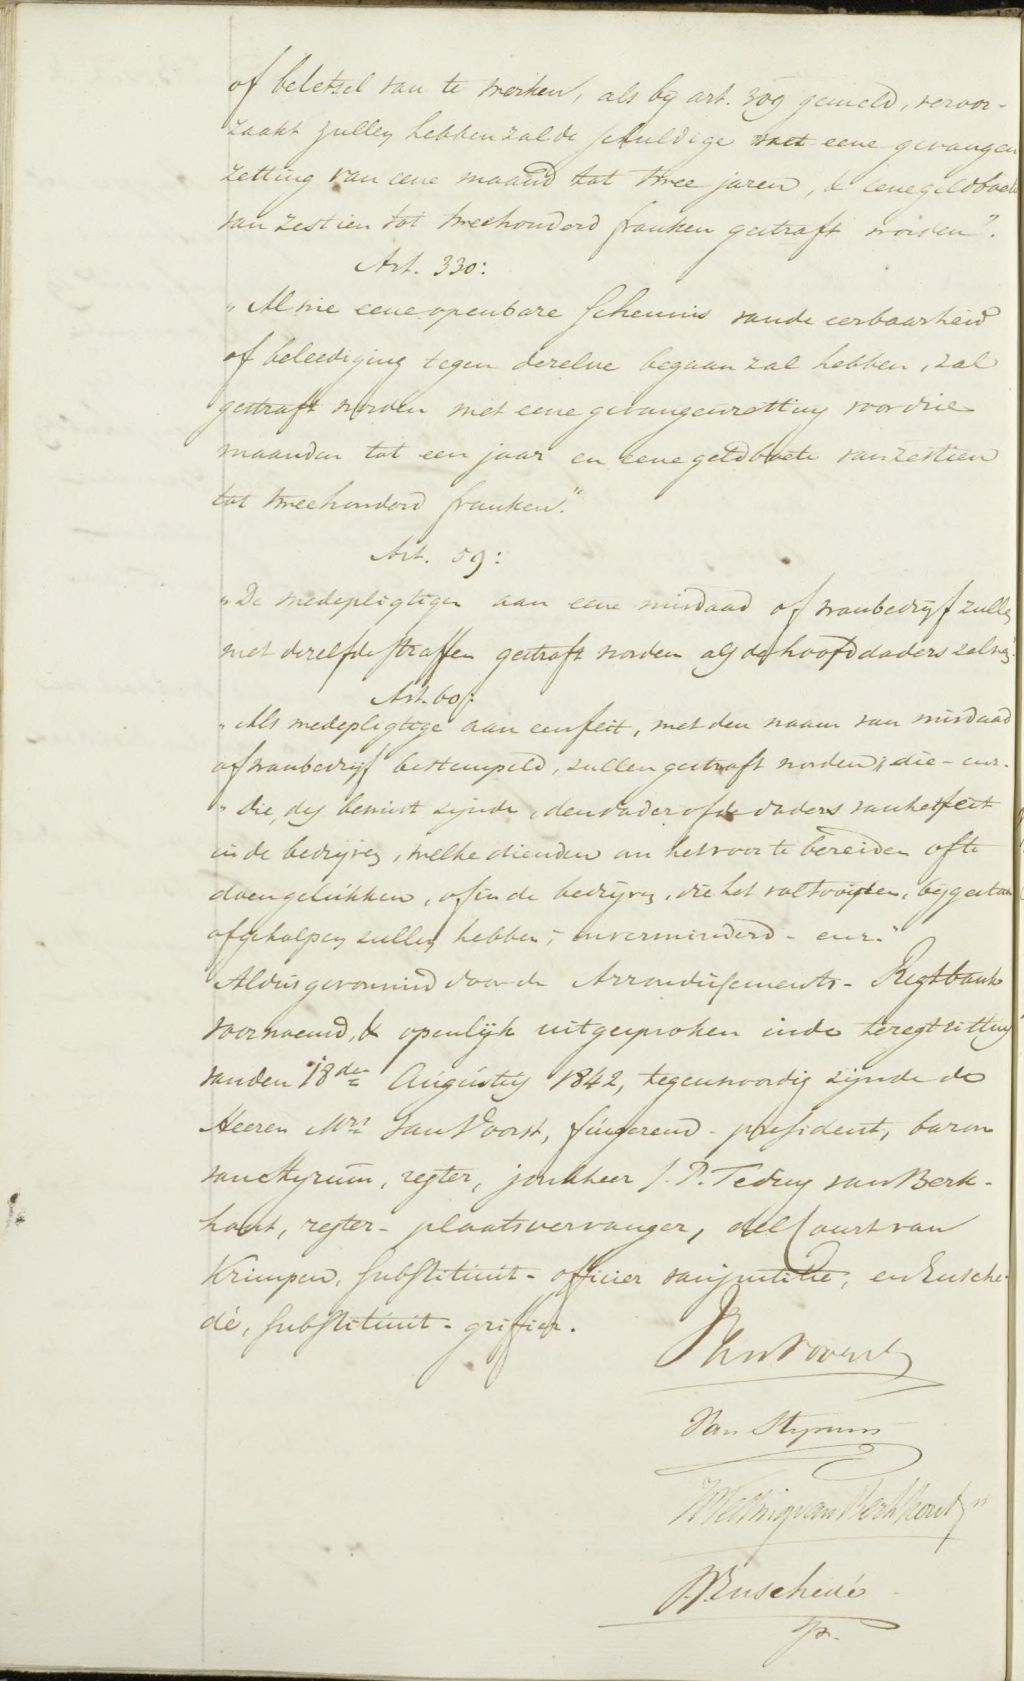 of beletsel van te werken, als by art. 309 gemeld, veroor-
zaakt zullen hebben zal de schuldige met eene gevangen
zetting van eene maand tot twee jaren, & eene geldboete
van zestien tot tweehonderd franken gestraft worden".
Art. 330:
"Al wie eene openbare schennis van de eerbaarheid
of beleediging tegen dezelve begaan zal hebben, zal
gestraft worden met eene gevangenzetting voor drie
maanden tot een jaar en eene geldboete van zestien
tot tweehonderd franken."
Art. 59:
"De medepligtigen aan eene misdaad of wanbedrijf zullen
met dezelfde straffen gestraft worden als de hoofddaders zelve."
Art. 60:
"Als medepligtige aan een feit, met den naam van misdaad
of wanbedrijf bestempeld, zullen gestraft worden, die - enz.
"die, des bewust zijnde, den dader of de daders van het feit
in de bedrijven, welke dienden om het voor te bereiden of te
doen gelukken, of in de bedrijven, die het voltooiden, bijgestaan
of geholpen zullen hebben; onverminderd - enz."
Aldus gevonnisd door de Arrondissements-Regtbank
voornoemd, & openlijk uitgesproken in de teregtzitting
van den 18den Augustus 1842, tegenwoordig zijnde de
Heeren Mrs van Voorst, fungerend-president, baron
van Styrum, regter, jonkheer J. P. Teding van Berk-
hout, regter-plaatsvervanger, del Court van
Krimpen, substituut-officier van justitie, en Ensche-
dé, substituut-griffier.
van Voorst
van Styrum
Teding van Berkhout
Enschedé